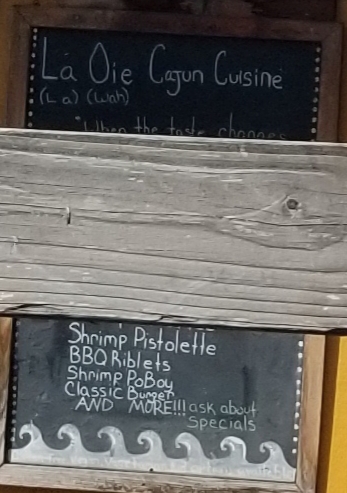 La Oie Cajun Cuisine
(La) (Wah)
"When the taste changes
Shrimp Pistolette
BBQ Riblets
Shrimp PoBoy
Classic Burger
AND MORE!!! ask about
Specials